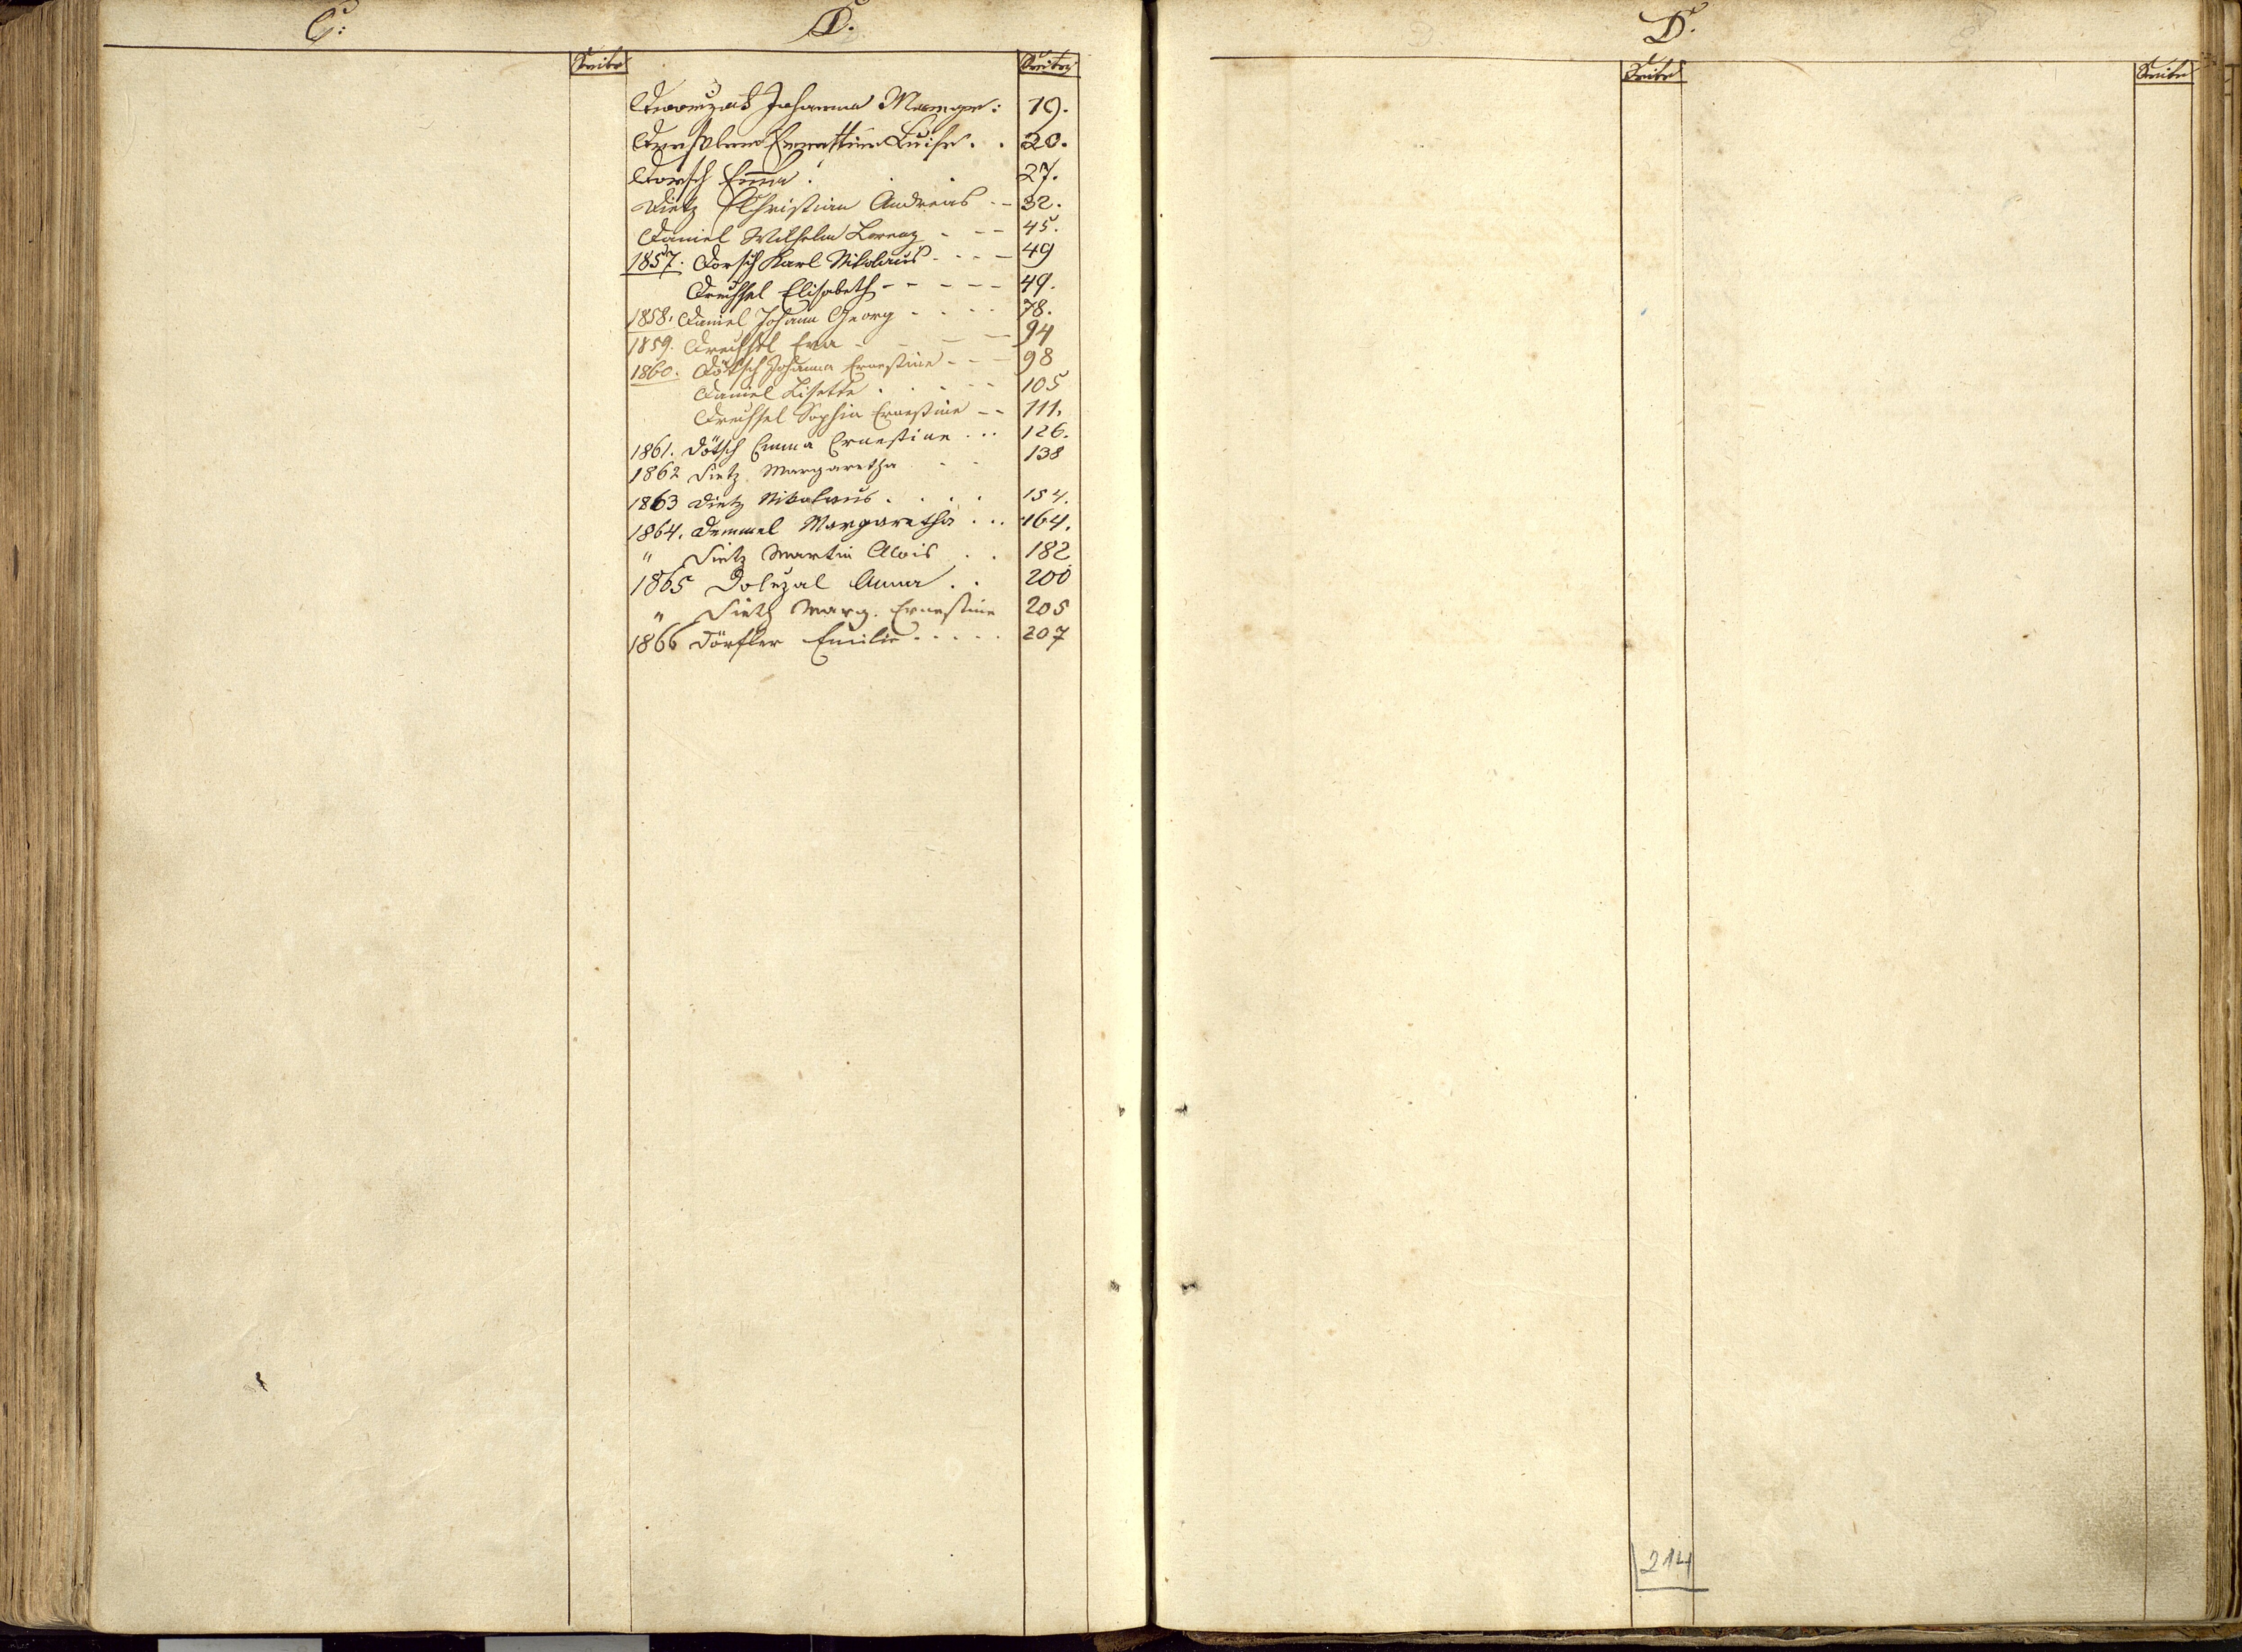 C:
D.
Seite
Seite
Johanna Marger: 19.
Luise. . 20.
Dorsch Emma. 27.
Dietz Christian Andreas . – 32.
Daniel Wilhelm Lorenz - - - 45.
1857. Dorsch Karl Nikolaus - - - - 49
Drechsel Elisabeth - - - - - 49.
1858. Daniel Johann Georg - - - - 78.
1859. Drechsel Eva - - - - 94
1860. Dötsch Johanna Ernestine - - - 98
Daniel Lisette . . . - - 105
Drechsel Sophia Ernestine - - 111.
1861. Dötsch Emma Ernestine ... 126.
1862 Dietz Margaretha - - 138
1863 Dietz Nikolaus . . . . 154.
1864. Demmel Margaretha ... 164.
" Dietz Martin Alois . . 182
1865 Doležal Anna . . 200
" Dietz Marg. Ernestine 205
1866 Dörfler Emilie . . . . . 207
D.
Seite
Seite
214